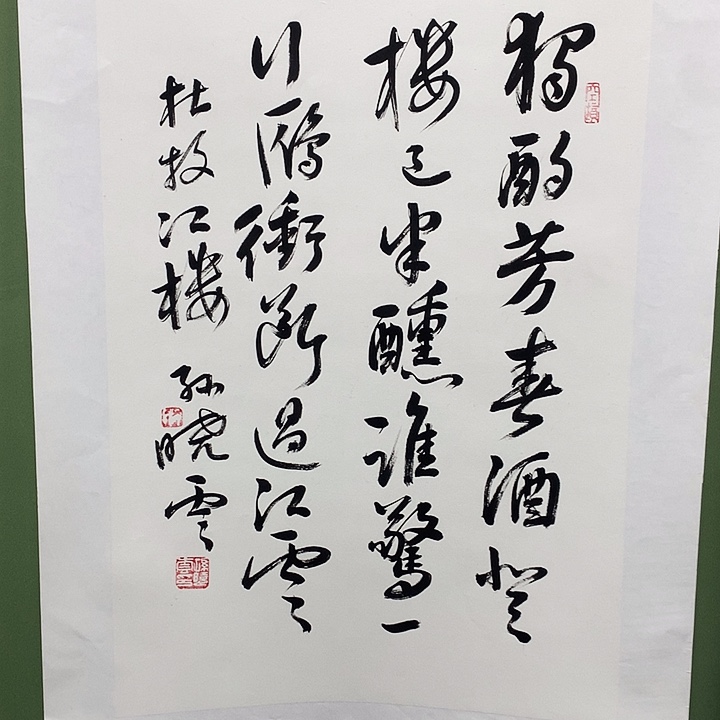 獨酌芳春酒登
樓已半醺誰驚一
行鴈衝斷過江雲
杜牧江樓 孫曉雲